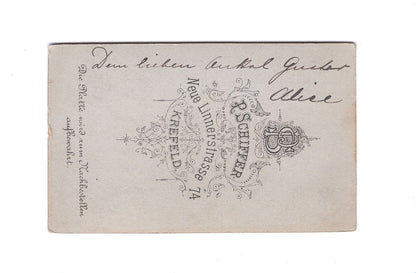 Dem lieben Onkel Gustav
Alice
P. SCHIFFER
Neue Linnerstrasse 74
KREFELD
Die Platte wird zum Nachbestellen
aufbewahrt.